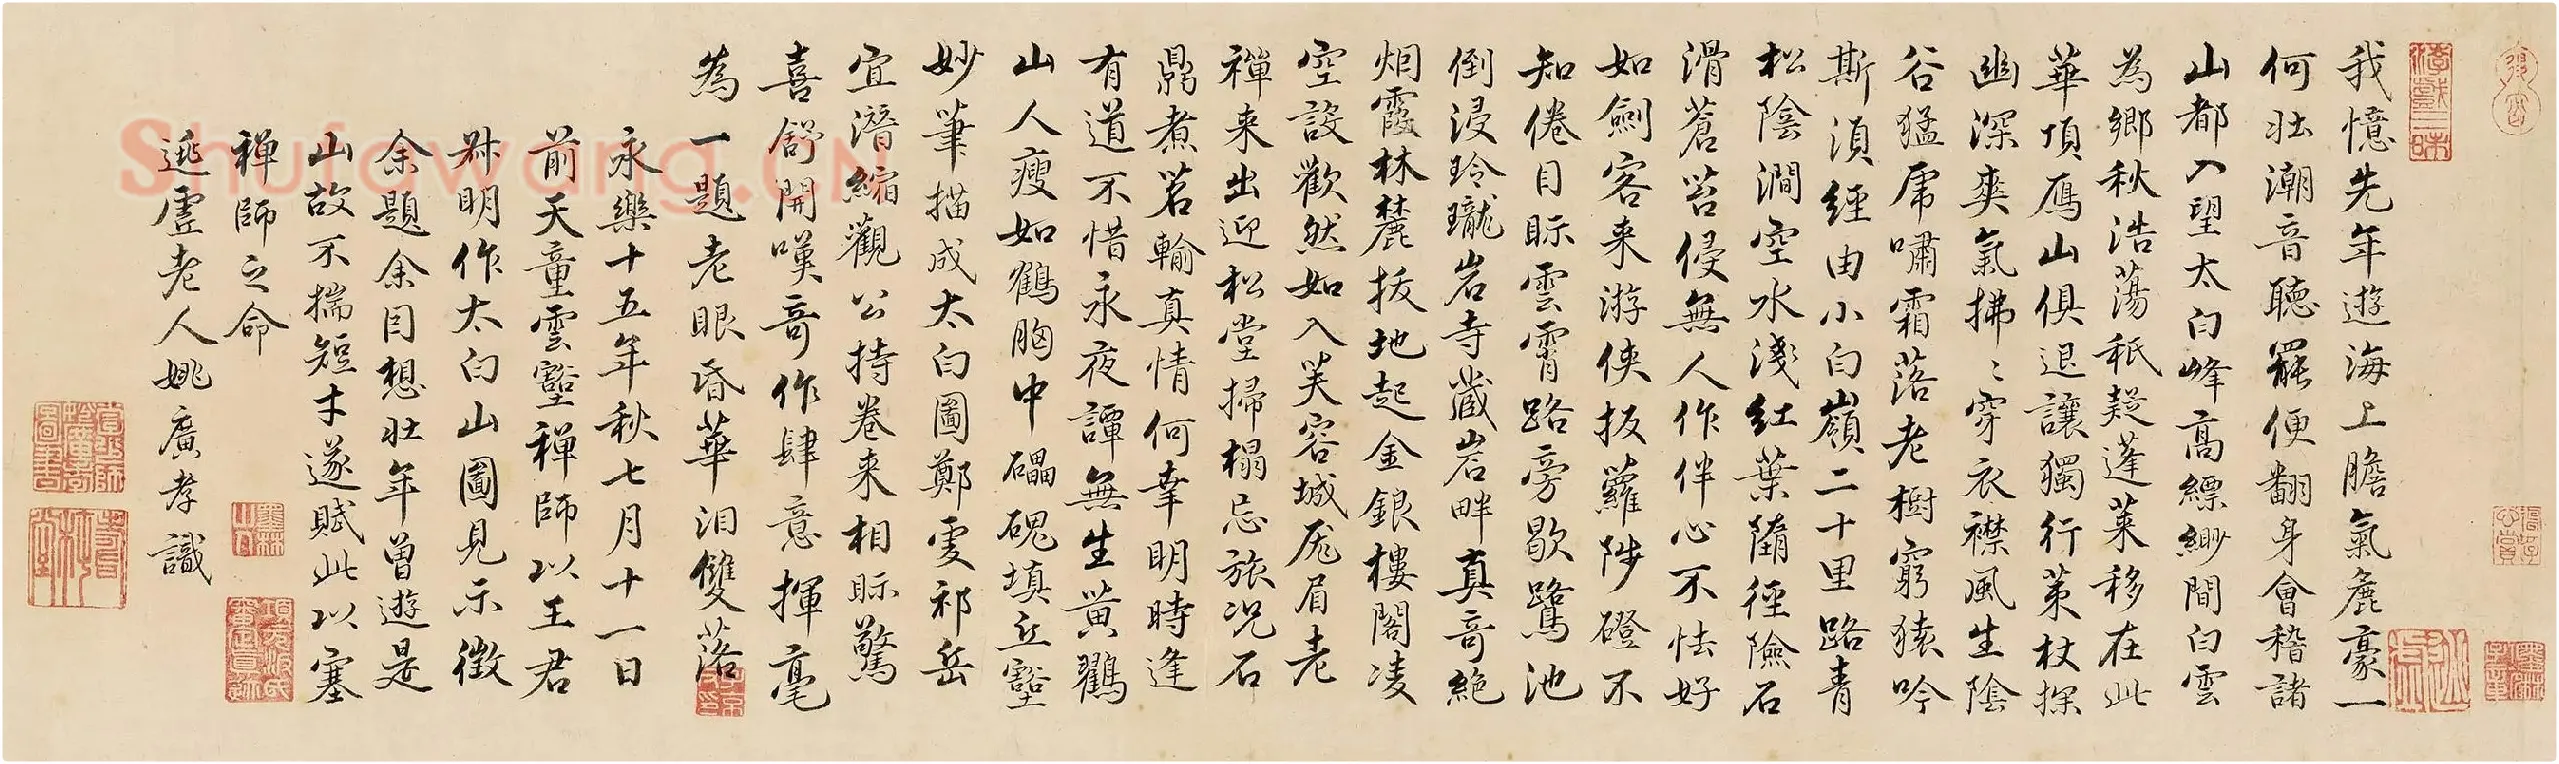 我憶先年遊海上膽氣麁豪一
何壯潮音聽罷便翻身會稽諸
山都入望太白峰高縹緲間白雲
為鄉秋浩蕩秖疑蓬萊移在此
華頂鴈山俱退讓獨行策杖探
幽深爽氣拂〻穿衣襟風生陰
谷猛虎嘯霜落老樹窮猿吟
斯須經由小白嶺二十里路青
松陰澗空水淺紅葉隨徑險石
滑蒼苔侵無人作伴心不怯好
如劍客来游俠扳蘿陟磴不
知倦目眎雲霄路旁歇鷺池
倒浸玲瓏岩寺藏岩畔真奇絕
烟霞林麓拔地起金銀樓閣凌
空設歡然如入笑容城厖眉老
禪来出迎松堂掃榻忘旅况石
鼎煮茗輸真情何幸明時逢
有道不惜永夜譚無生黃鸝
山人瘦如鶴胸中礧磈填丘壑
妙筆描成太白圖鄭虔祁岳
宜潛縮觀公持卷来相眎驚
喜舒開嘆奇作肆意揮毫
為一題老眼昏華泪雙落
永樂十五年秋七月十一日
前天童雲壑禅師以王君
叔明作太白山圖見示徵
余題余因想壯年曾遊是
山故不揣短才遂賦此以塞
禅師之命
逃虛老人姚廣孝識
Shufawang.CN